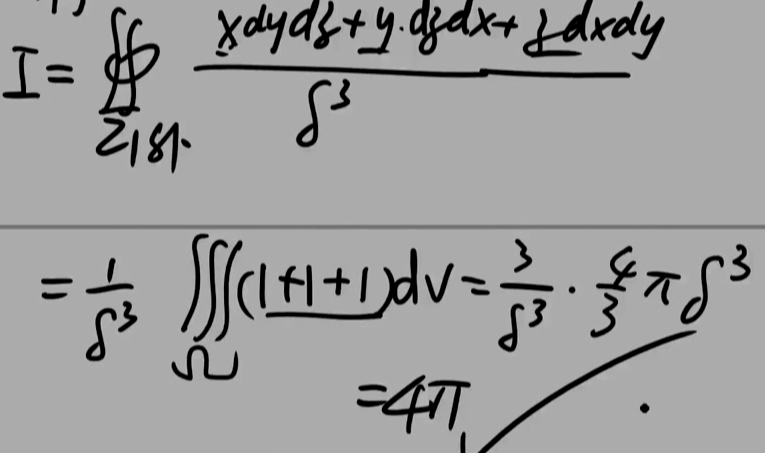 I = ∯_{Σ_1外} (x dydz + y·dzdx + z dxdy) / δ^3
= 1/δ^3 ∭_Ω (1+1+1)dV = 3/δ^3 · 4/3 π δ^3
= 4π